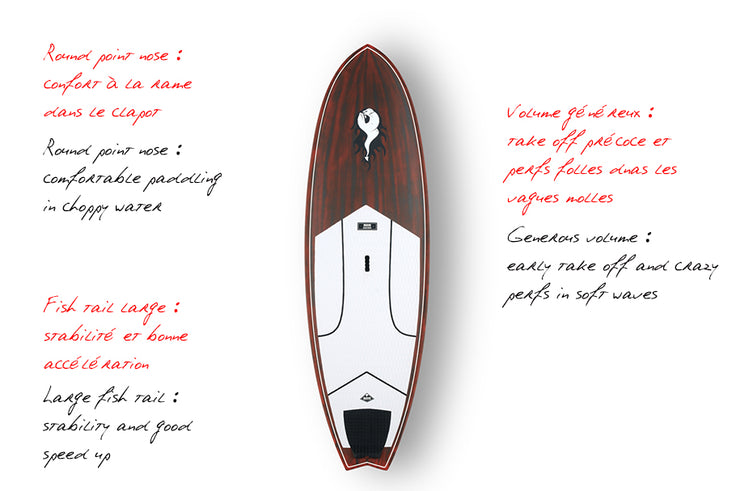 Round point nose :
confort à la rame
dans le clapot
Round point nose :
comfortable paddling
in choppy water
Fish tail large :
stabilité et bonne
accélération
Large fish tail :
stability and good
speed up
Volume généreux :
take off précoce et
perfs folles dnas les
vagues molles
Generous volume :
early take off and crazy
perfs in soft waves